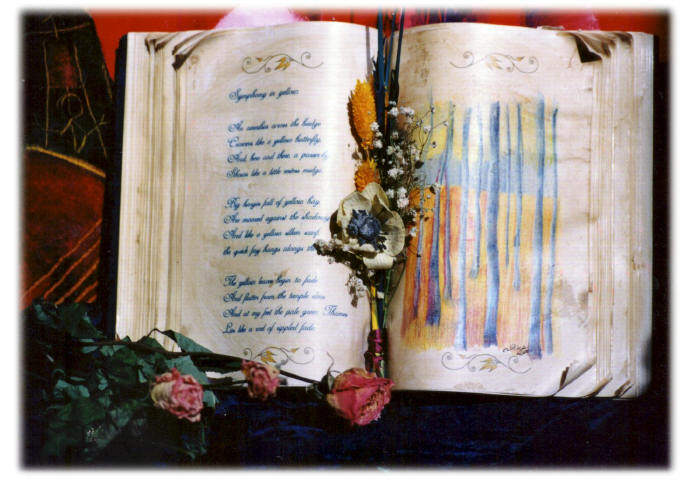 Symphony in yellow
An omnibus across the bridge
Crawls like a yellow butterfly,
And, here and there, a passer-by
Shows like a little restless midge.
Big barges full of yellow hay
Are moored against the shadowy
And like a yellow silken scarf,
the thick fog hangs along
The yellow leaves begin to fade
And flutter from the temple elms
And at my feet the pale green Thames
Lies like a rod of rippled jade.